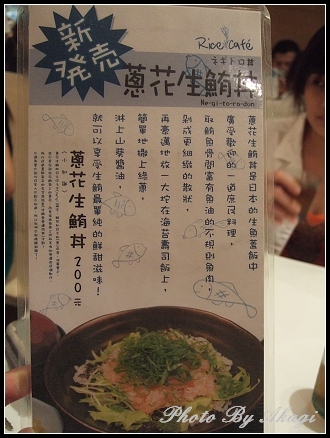 新
発売
Rice Café
ネギトロ丼
蔥花生鮪丼
Ne-gi-to-ro-don
蔥花生鮪丼是日本的生魚蓋飯中
廣受歡迎的一道庶民料理，
取鮪魚骨間富有魚油的不規則魚肉，
剁成更細緻的散狀，
再豪邁地放一大坨在海苔壽司飯上，
簡單地撒上綠蔥，
淋上山葵醬油，
就可以享受生鮪最單純的鮮甜滋味！
蔥花生鮪丼 200元
Photo By Akagi